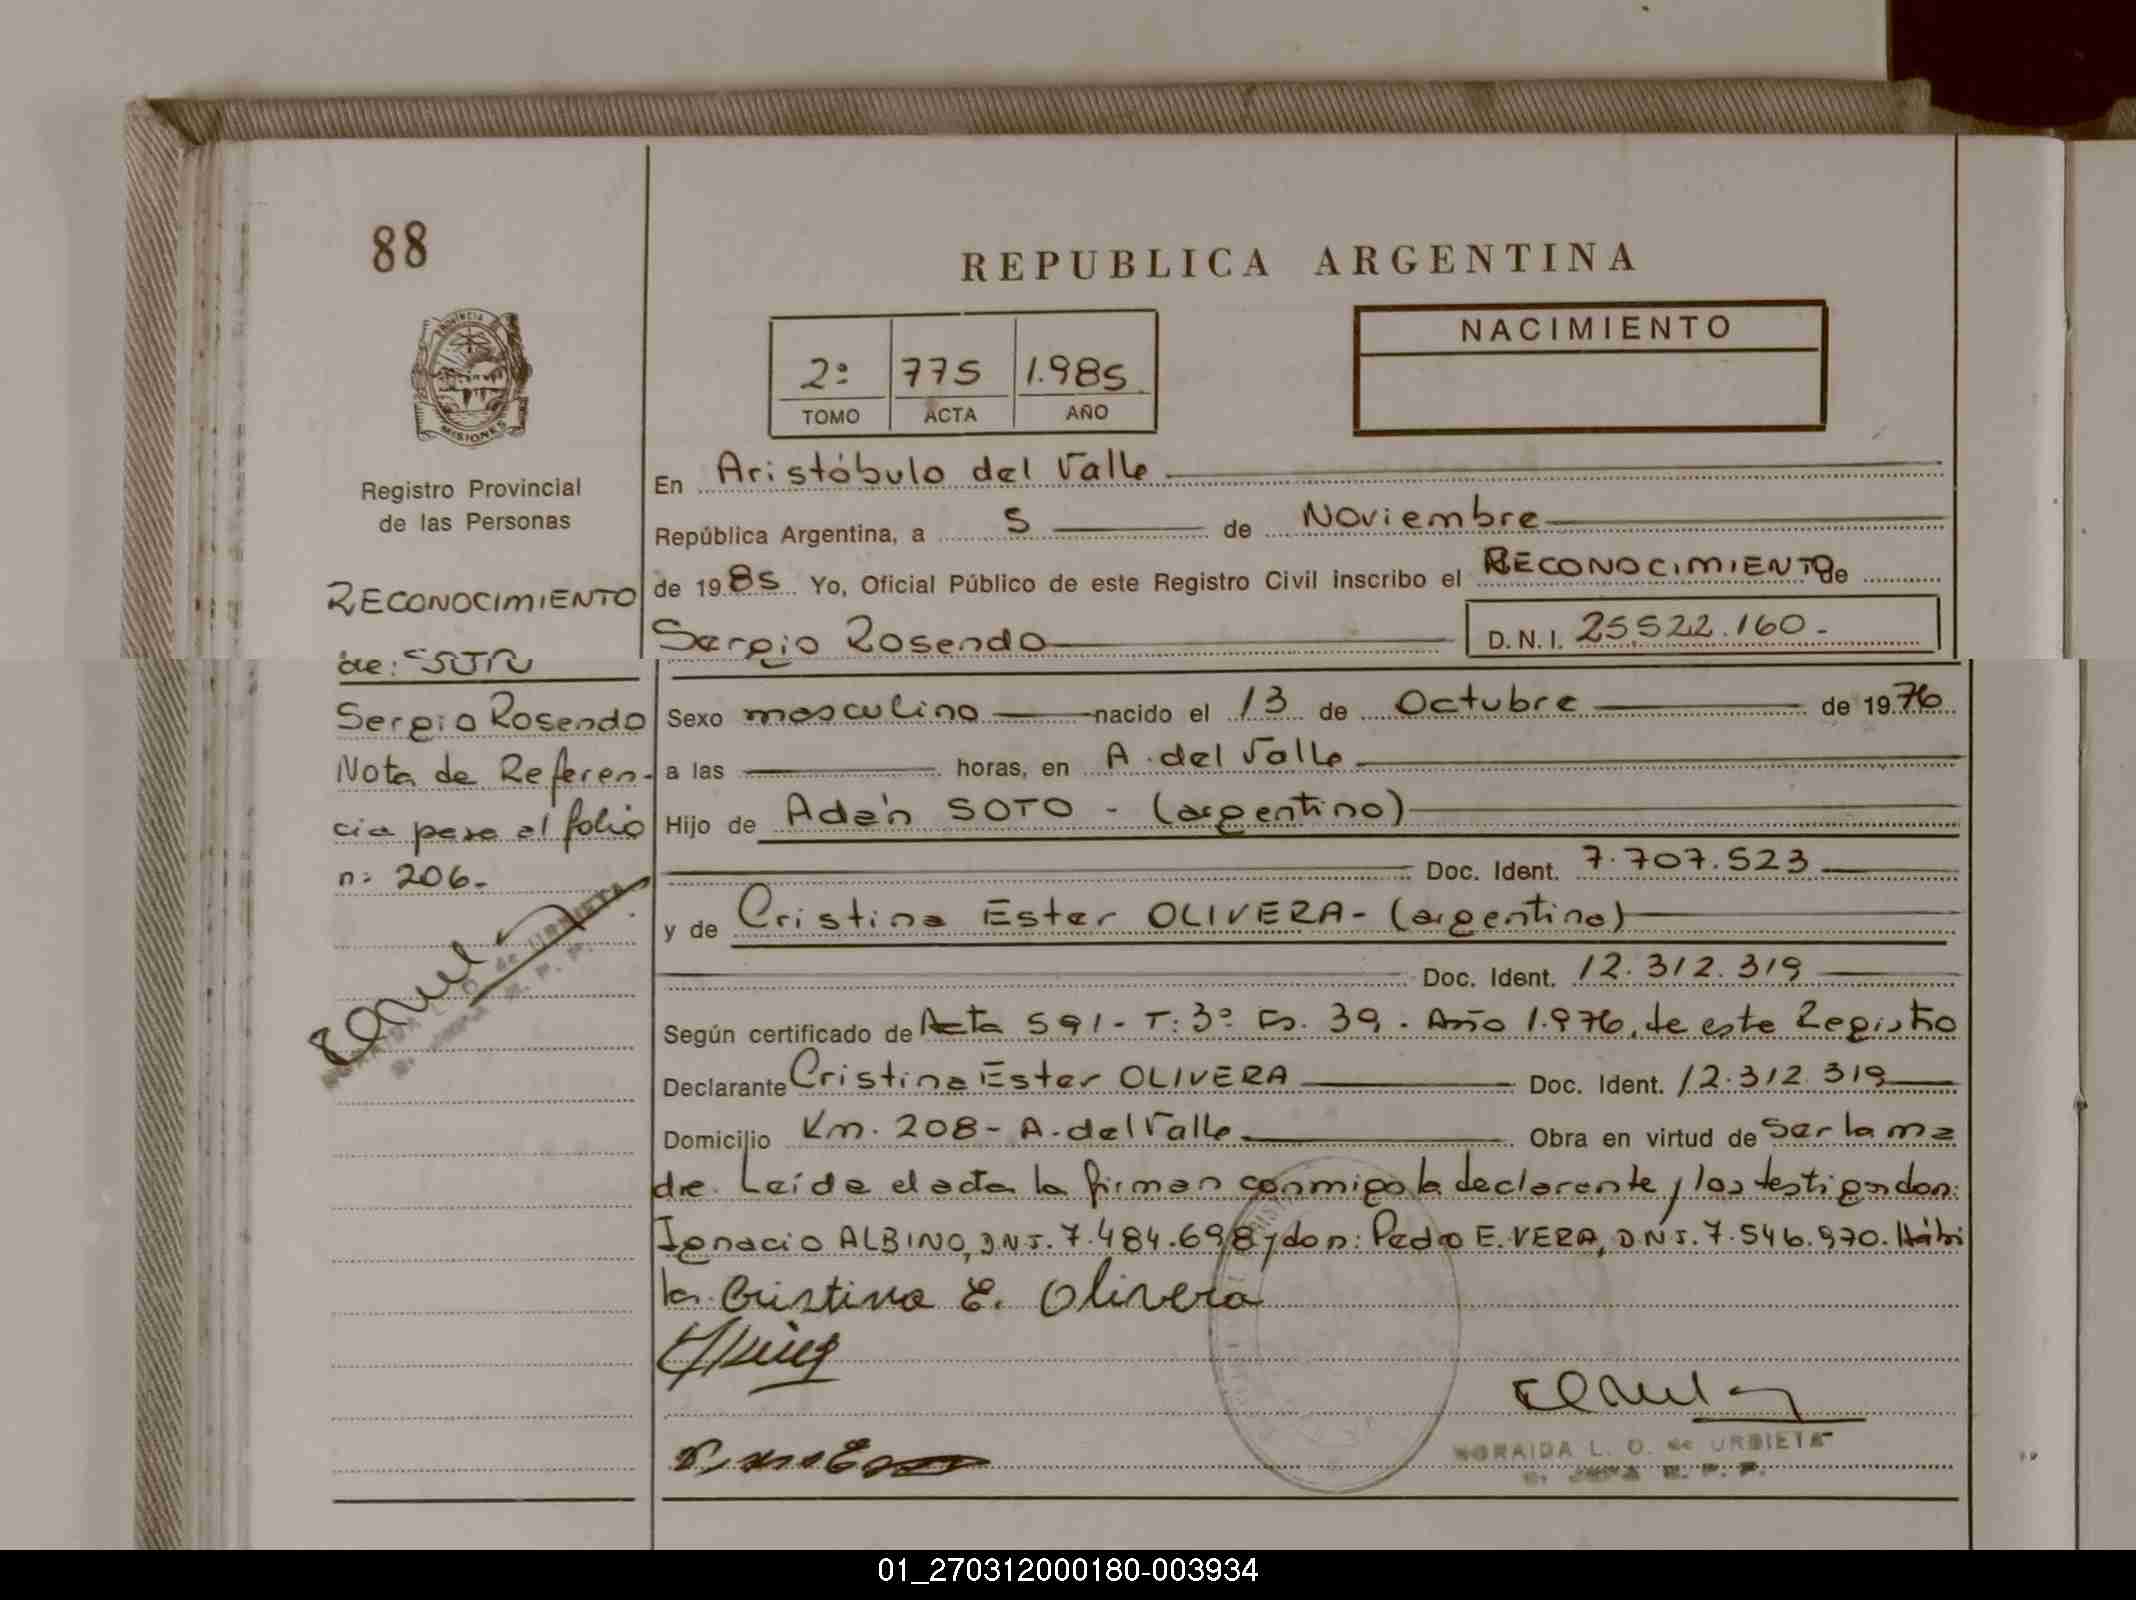 88
REPUBLICA ARGENTINA
PROVINCIA
MISIONES
2º 775 1.985
TOMO ACTA AÑO
NACIMIENTO
Registro Provincial
de las Personas
RECONOCIMIENTO
de:
Sergio Rosendo
Nota de Referen-
cia pasa al folio
nº 206.-
En Aristóbulo del Valle
República Argentina, a 5 de Noviembre
de 1985 Yo, Oficial Público de este Registro Civil inscribo el RECONOCIMIENTO de
Sergio Rosendo D.N.I. 25.522.160.-
Sexo masculino nacido el 13 de Octubre de 1976
a las horas, en A. del Valle
Hijo de Adán SOTO - (argentino)
Doc. Ident. 7.707.523
y de Cristina Ester OLIVERA - (argentina)
Doc. Ident. 12.312.319
Según certificado de Acta 591 - T: 3º Fo. 39. Año 1.976, de este Registro
Declarante Cristina Ester OLIVERA Doc. Ident. 12.312.319
Domicilio Km. 208 - A. del Valle Obra en virtud de Ser la ma
dre. Leída el acta la firman conmigo la declarante y los testigos don:
Ignacio ALBINO, D.N.I. 7.484.698 y don: Pedro E. VERA, D.N.I. 7.546.970.
la. Cristina E. Olivera
NORAIDA L. O. de URBIETA